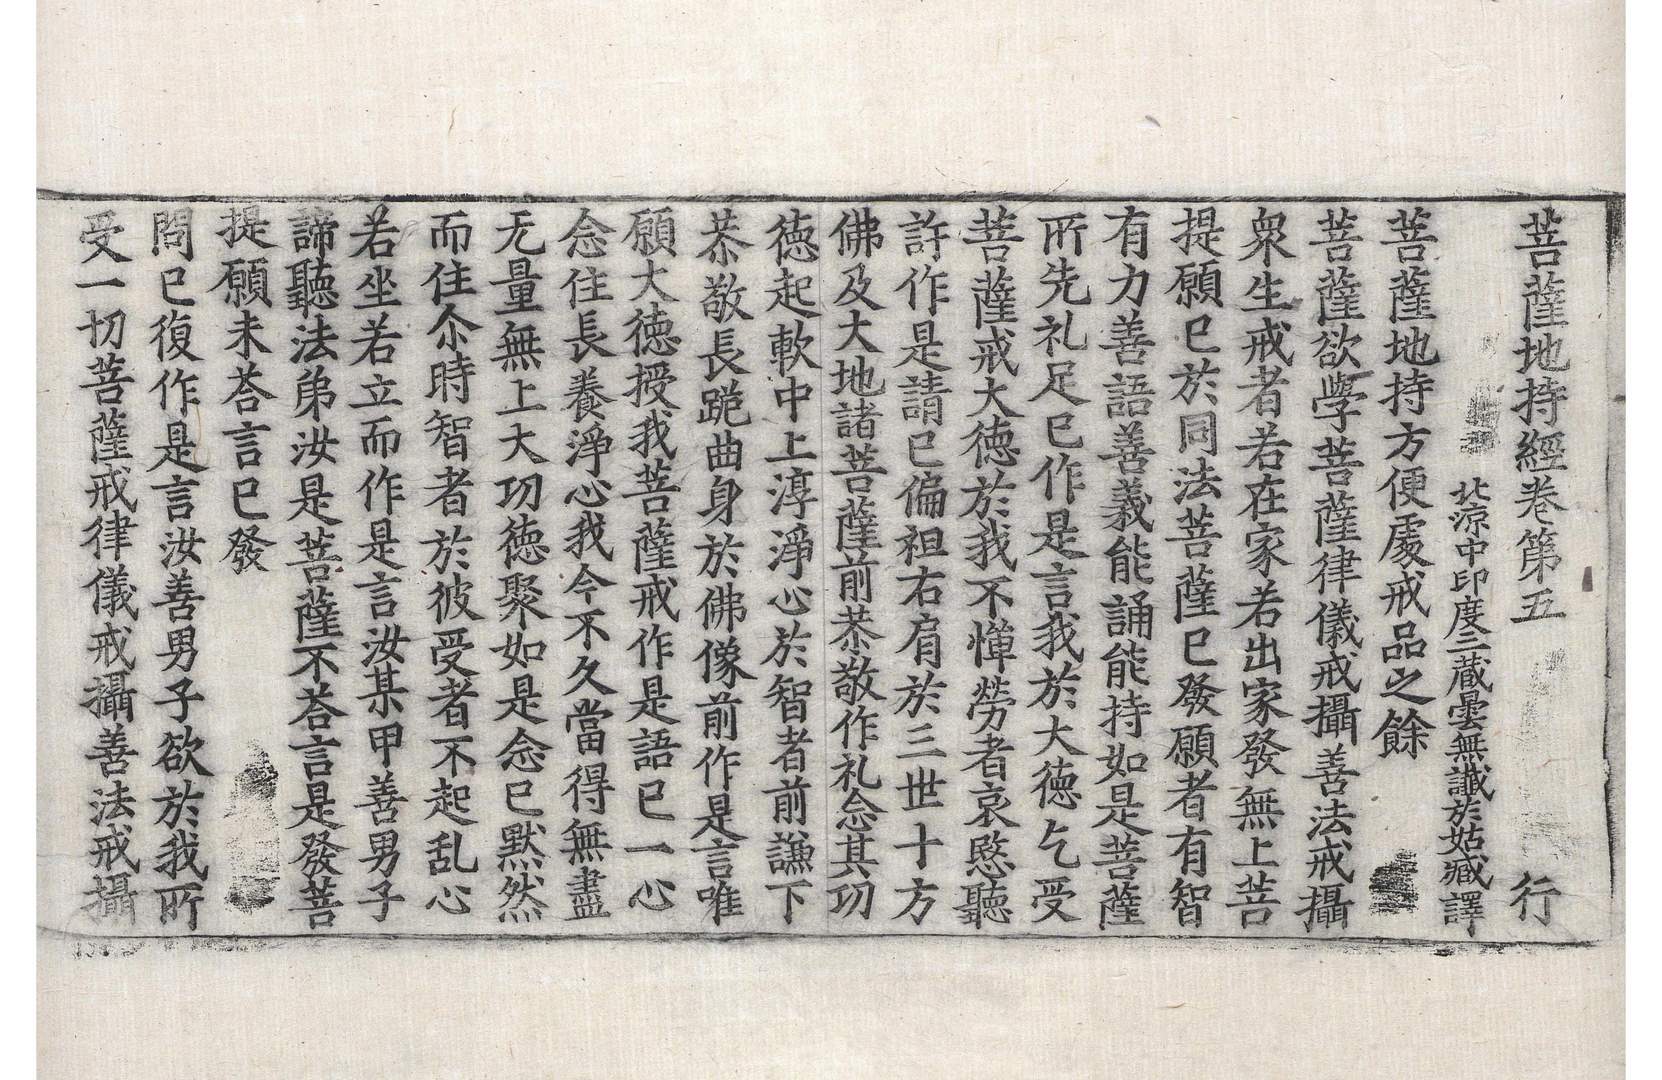 菩薩地持經卷第五　　　行
北涼中印度三藏曇無讖於姑臧譯
菩薩地持方便處戒品之餘
菩薩欲學菩薩律儀戒攝善法戒攝
衆生戒者若在家若出家發無上菩
提願已於同法菩薩已發願者有智
有力善語善義能誦能持如是菩薩
所先礼足已作是言我於大德乞受
菩薩戒大德於我不憚勞者哀愍聽
許作是請已偏袒右肩於三世十方
佛及大地諸菩薩前恭敬作礼念其功
德起軟中上淳淨心於智者前謙下
恭敬長跪曲身於佛像前作是言唯
願大德授我菩薩戒作是語已一心
念住長養淨心我今不久當得無盡
无量無上大功德聚如是念已默然
而住尒時智者於彼受者不起乱心
若坐若立而作是言汝某甲善男子
諦聽法弟汝是菩薩不荅言是發菩
提願未荅言已發
問已復作是言汝善男子欲於我所
受一切菩薩戒律儀戒攝善法戒攝